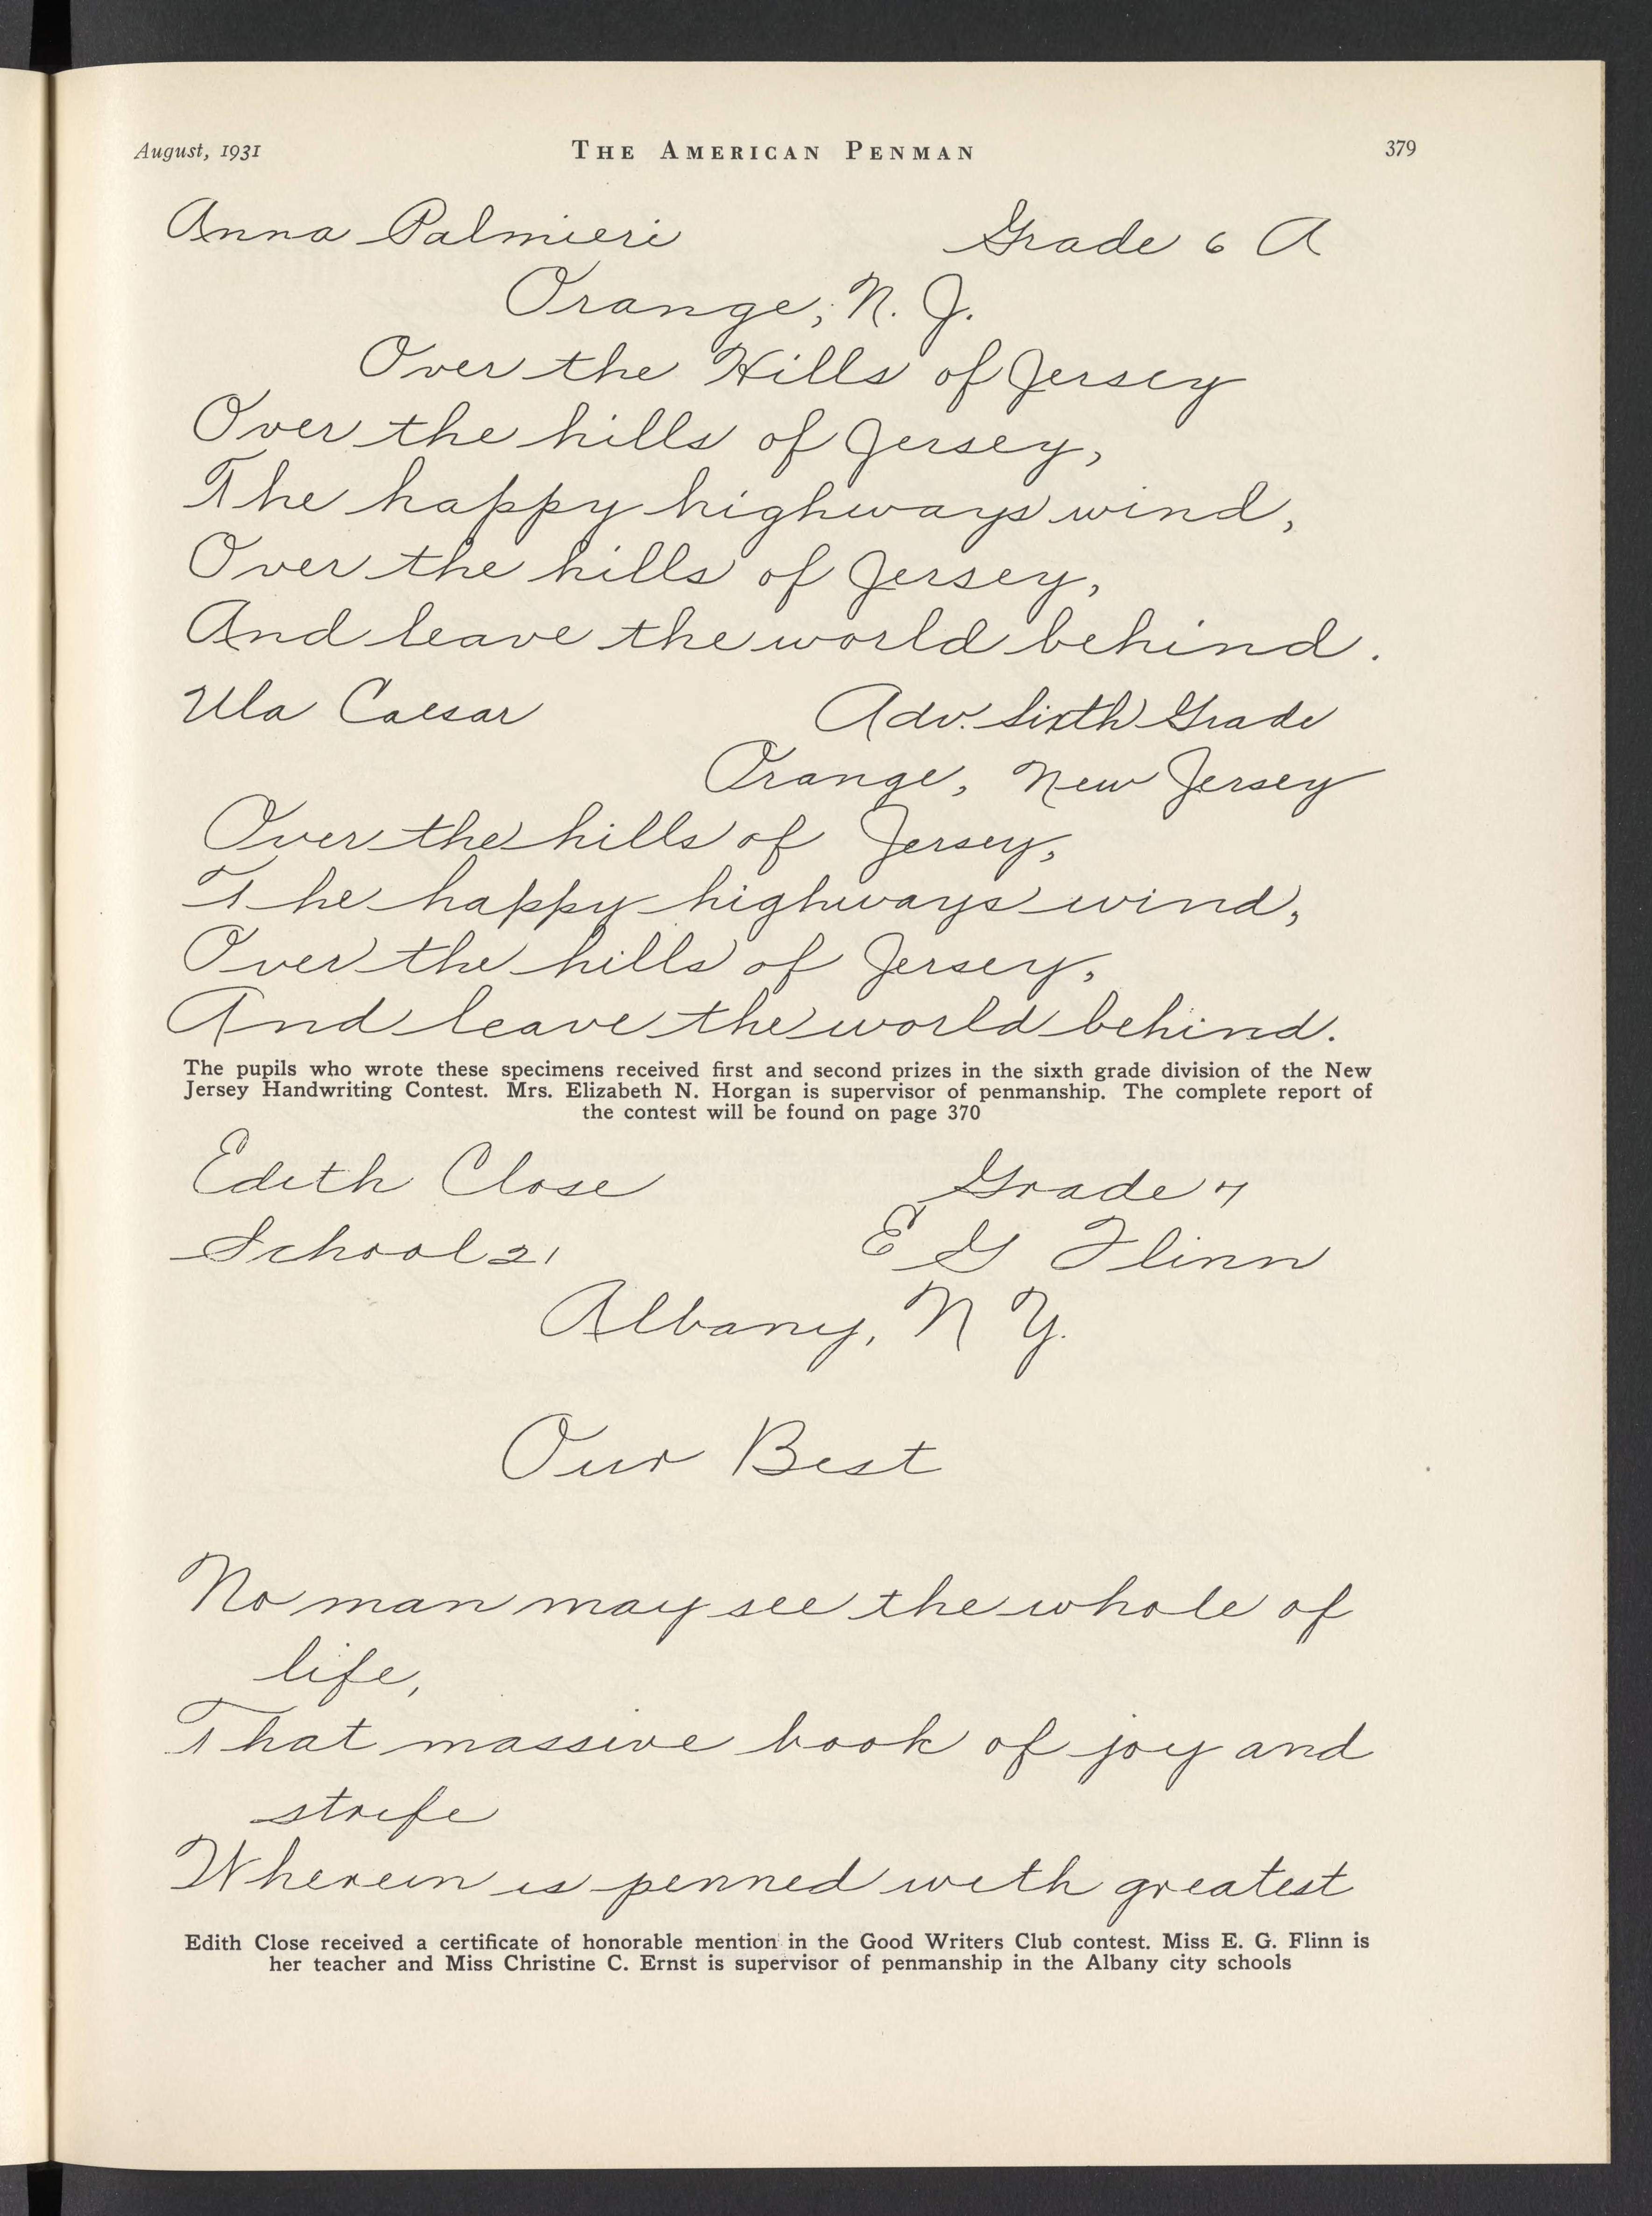 August, 1931 THE AMERICAN PENMAN 379
Anna Palmieri Grade 6 A
Orange, N. J.
Over the Hills of Jersey
Over the hills of Jersey,
The happy highways wind,
Over the hills of Jersey,
And leave the world behind.
Ula Caesar Adv. Sixth Grade
Orange, New Jersey
Over the hills of Jersey,
The happy highways wind,
Over the hills of Jersey,
And leave the world behind.
The pupils who wrote these specimens received first and second prizes in the sixth grade division of the New
Jersey Handwriting Contest. Mrs. Elizabeth N. Horgan is supervisor of penmanship. The complete report of
the contest will be found on page 370
Edith Close Grade 7
School 21 E G Flinn
Albany, N Y.
Our Best
No man may see the whole of
life,
That massive book of joy and
strife
Wherein is penned with greatest
Edith Close received a certificate of honorable mention in the Good Writers Club contest. Miss E. G. Flinn is
her teacher and Miss Christine C. Ernst is supervisor of penmanship in the Albany city schools